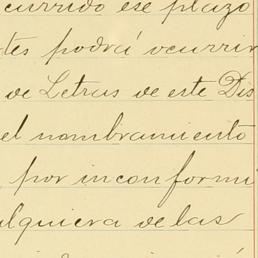 currido ese plazo
tes podrá ocurrir
de Letras de este Dis
el nombramiento
por inconformi
alquiera de las